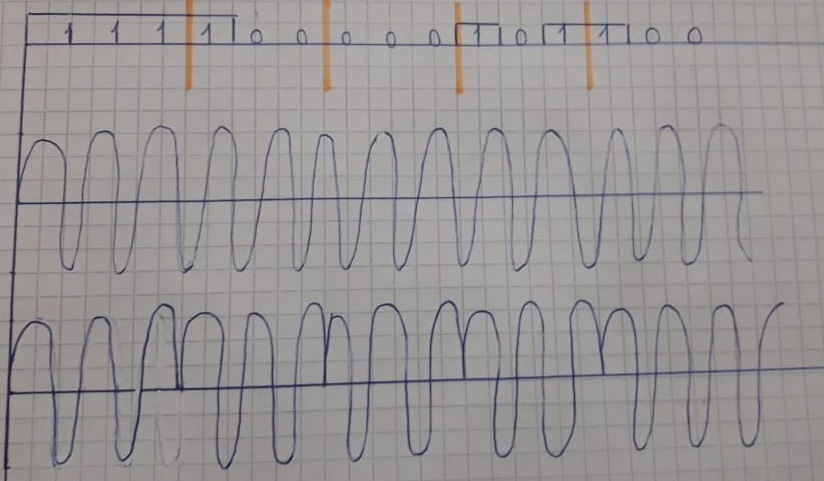 1 1 1 1 0 0 0 0 0 1 0 1 1 0 0